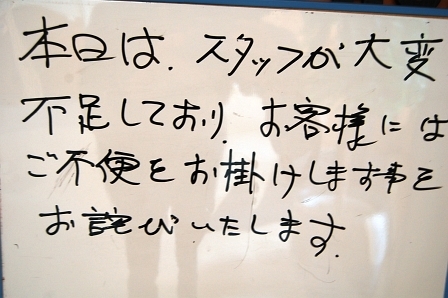 本日は、スタッフが大変
不足しており、お客様には
ご不便をお掛けします事を
お詫びいたします。